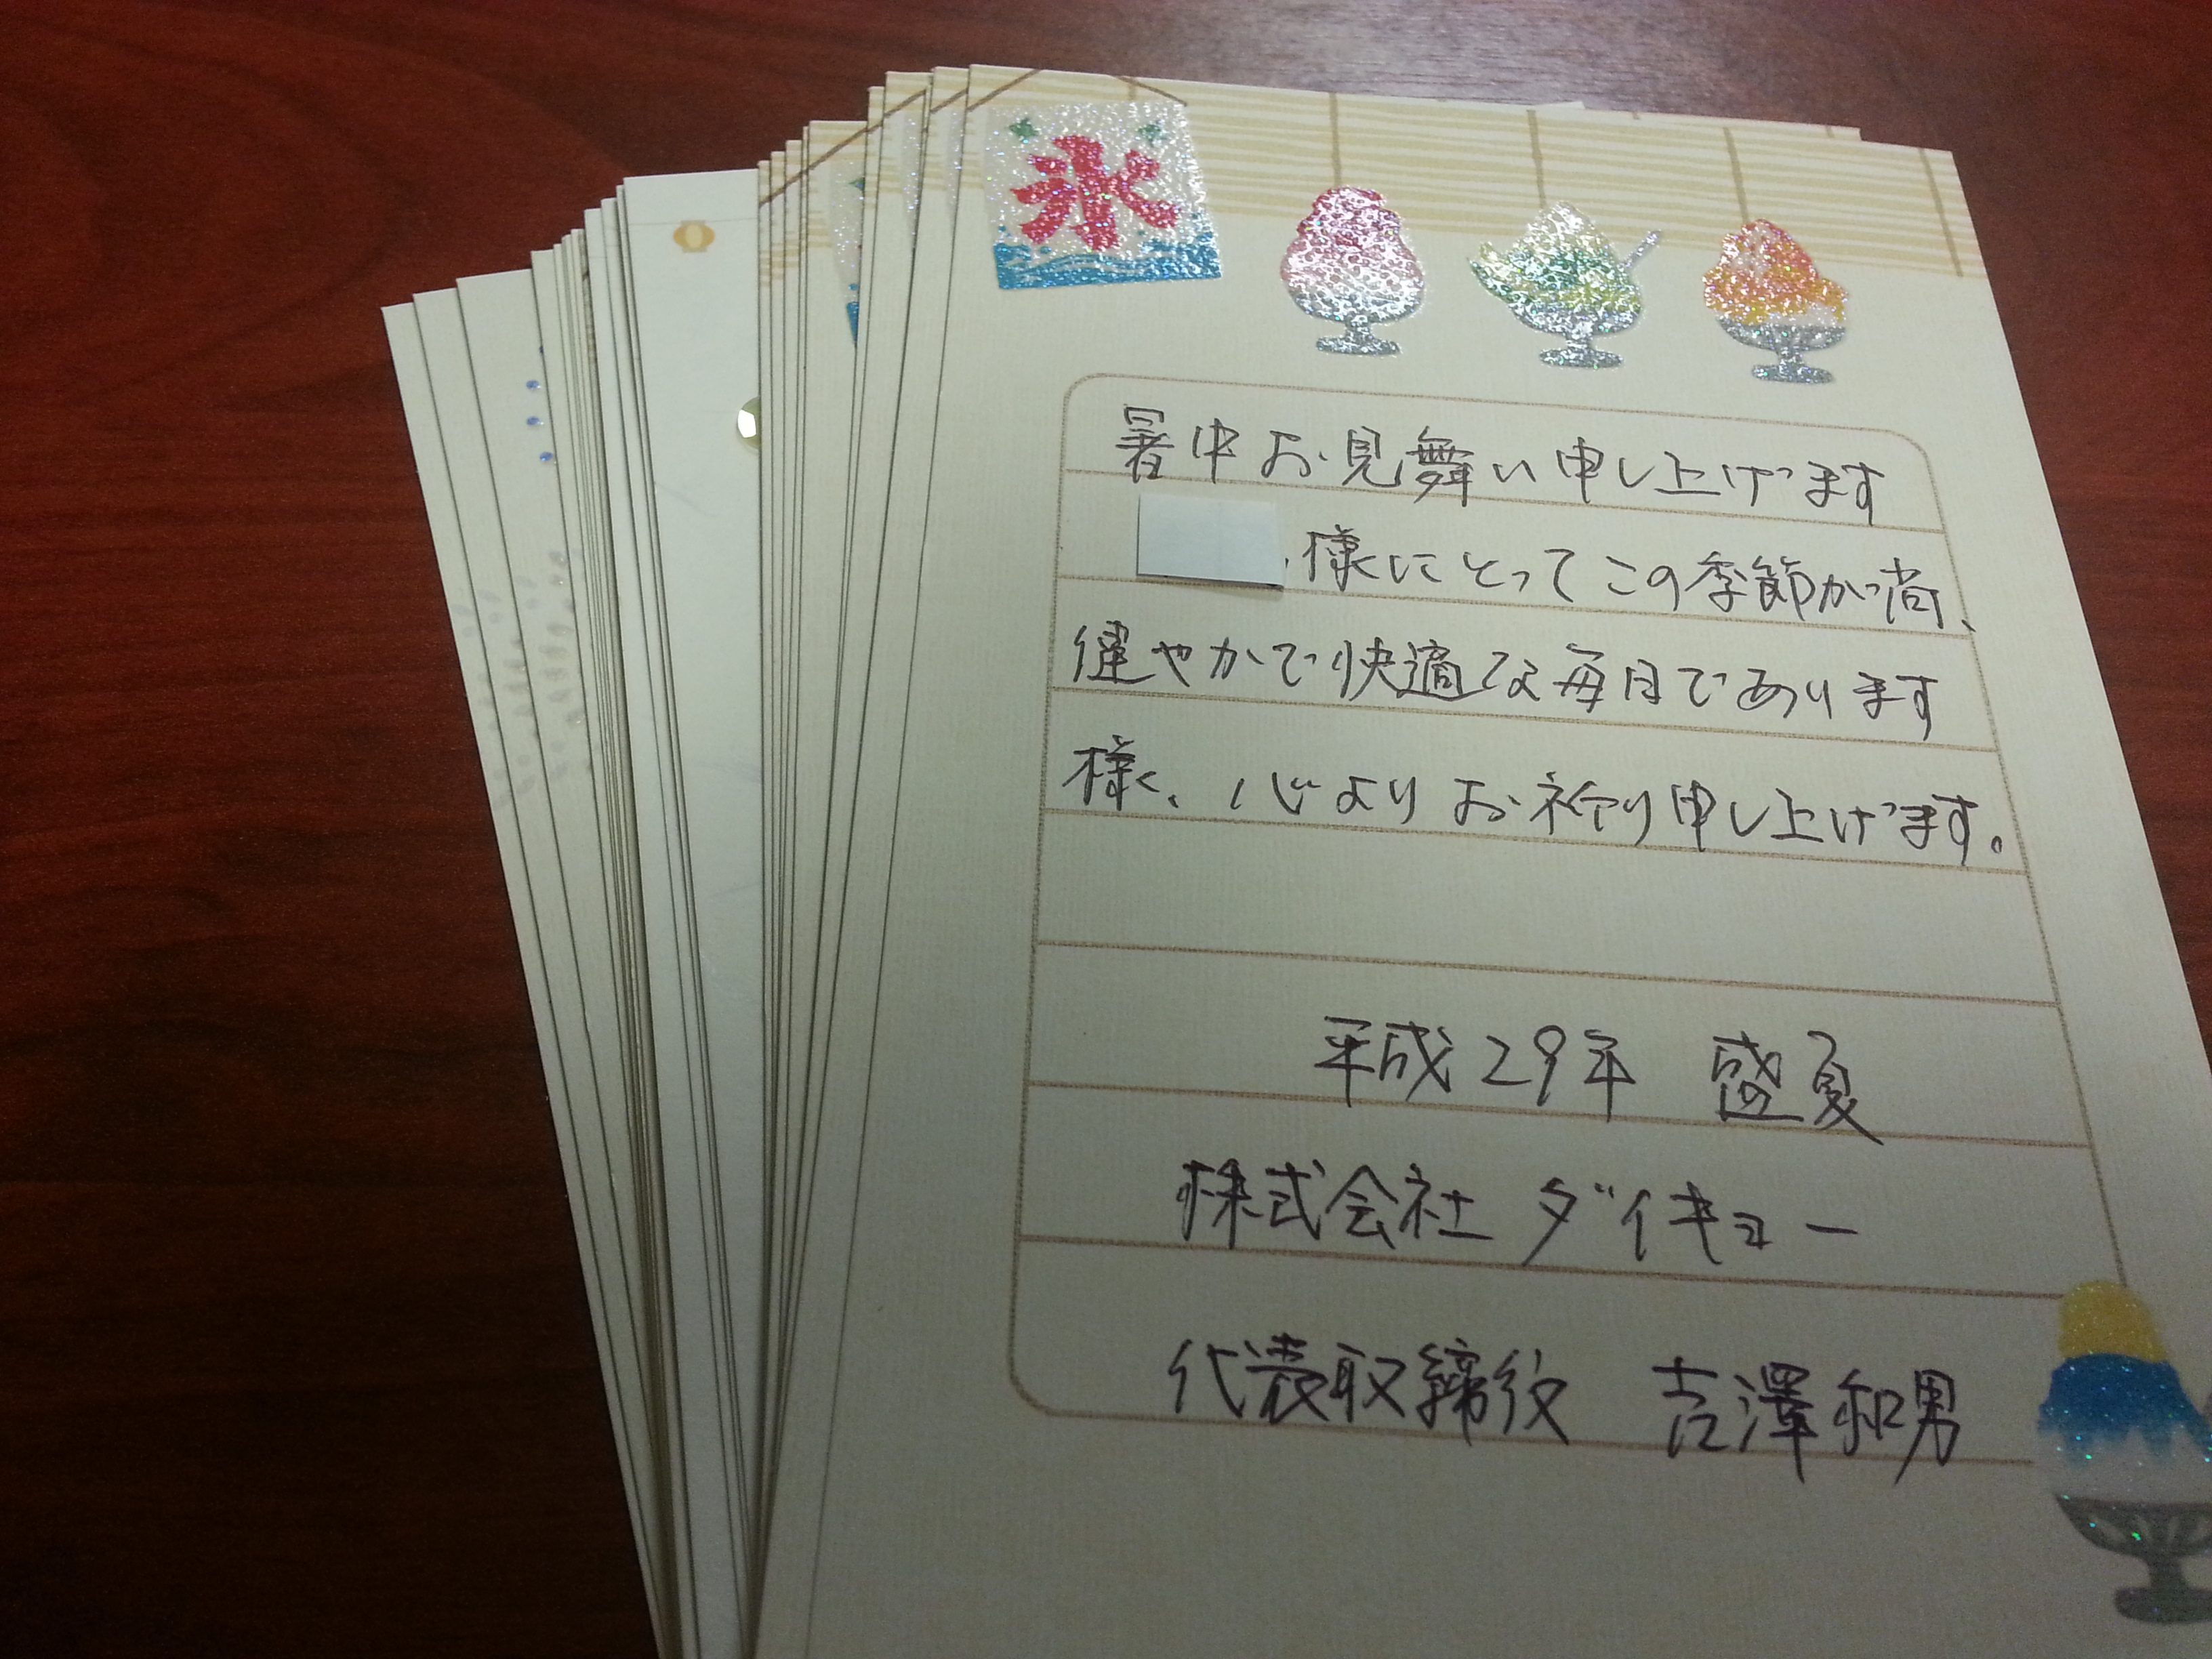 氷
暑中お見舞い申し上げます
様にとってこの季節が尚、
健やかで快適な毎日であります
様、心よりお祈り申し上げます。
平成29年 盛夏
株式会社 ダイキョー
代表取締役 吉澤和男